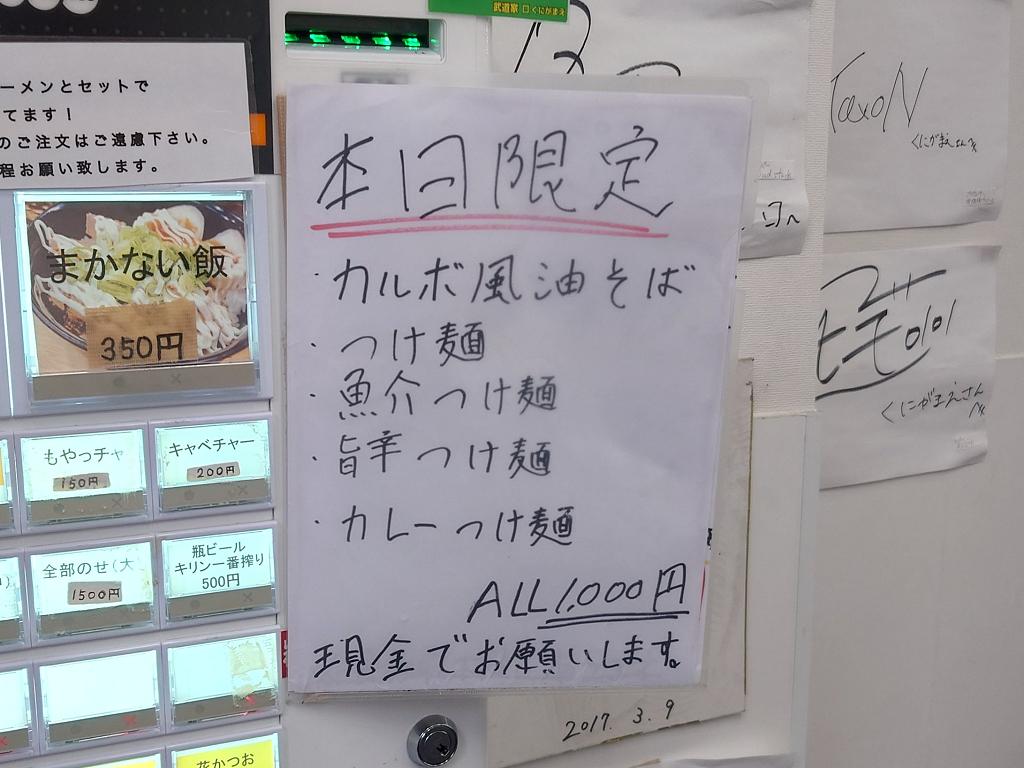 武道家 口くにがまえ
ーメンとセットで
てます！
のご注文はご遠慮下さい。
程お願い致します。
まかない飯
350円
もやっチャ
150円
キャベチャー
200円
全部のせ(大
1500円
瓶ビール
キリン一番搾り
500円
花かつお
本日限定
・カルボ風油そば
・つけ麺
・魚介つけ麺
・旨辛つけ麺
・カレーつけ麺
ALL 1,000円
現金でお願いします。
2017. 3. 9
くにがまえさん
くにがまえさん